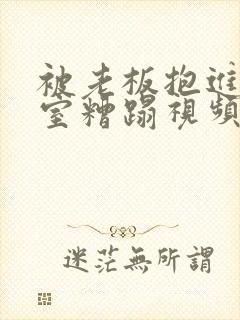 被老板抱進
室糟蹋視頻
迷茫無所謂